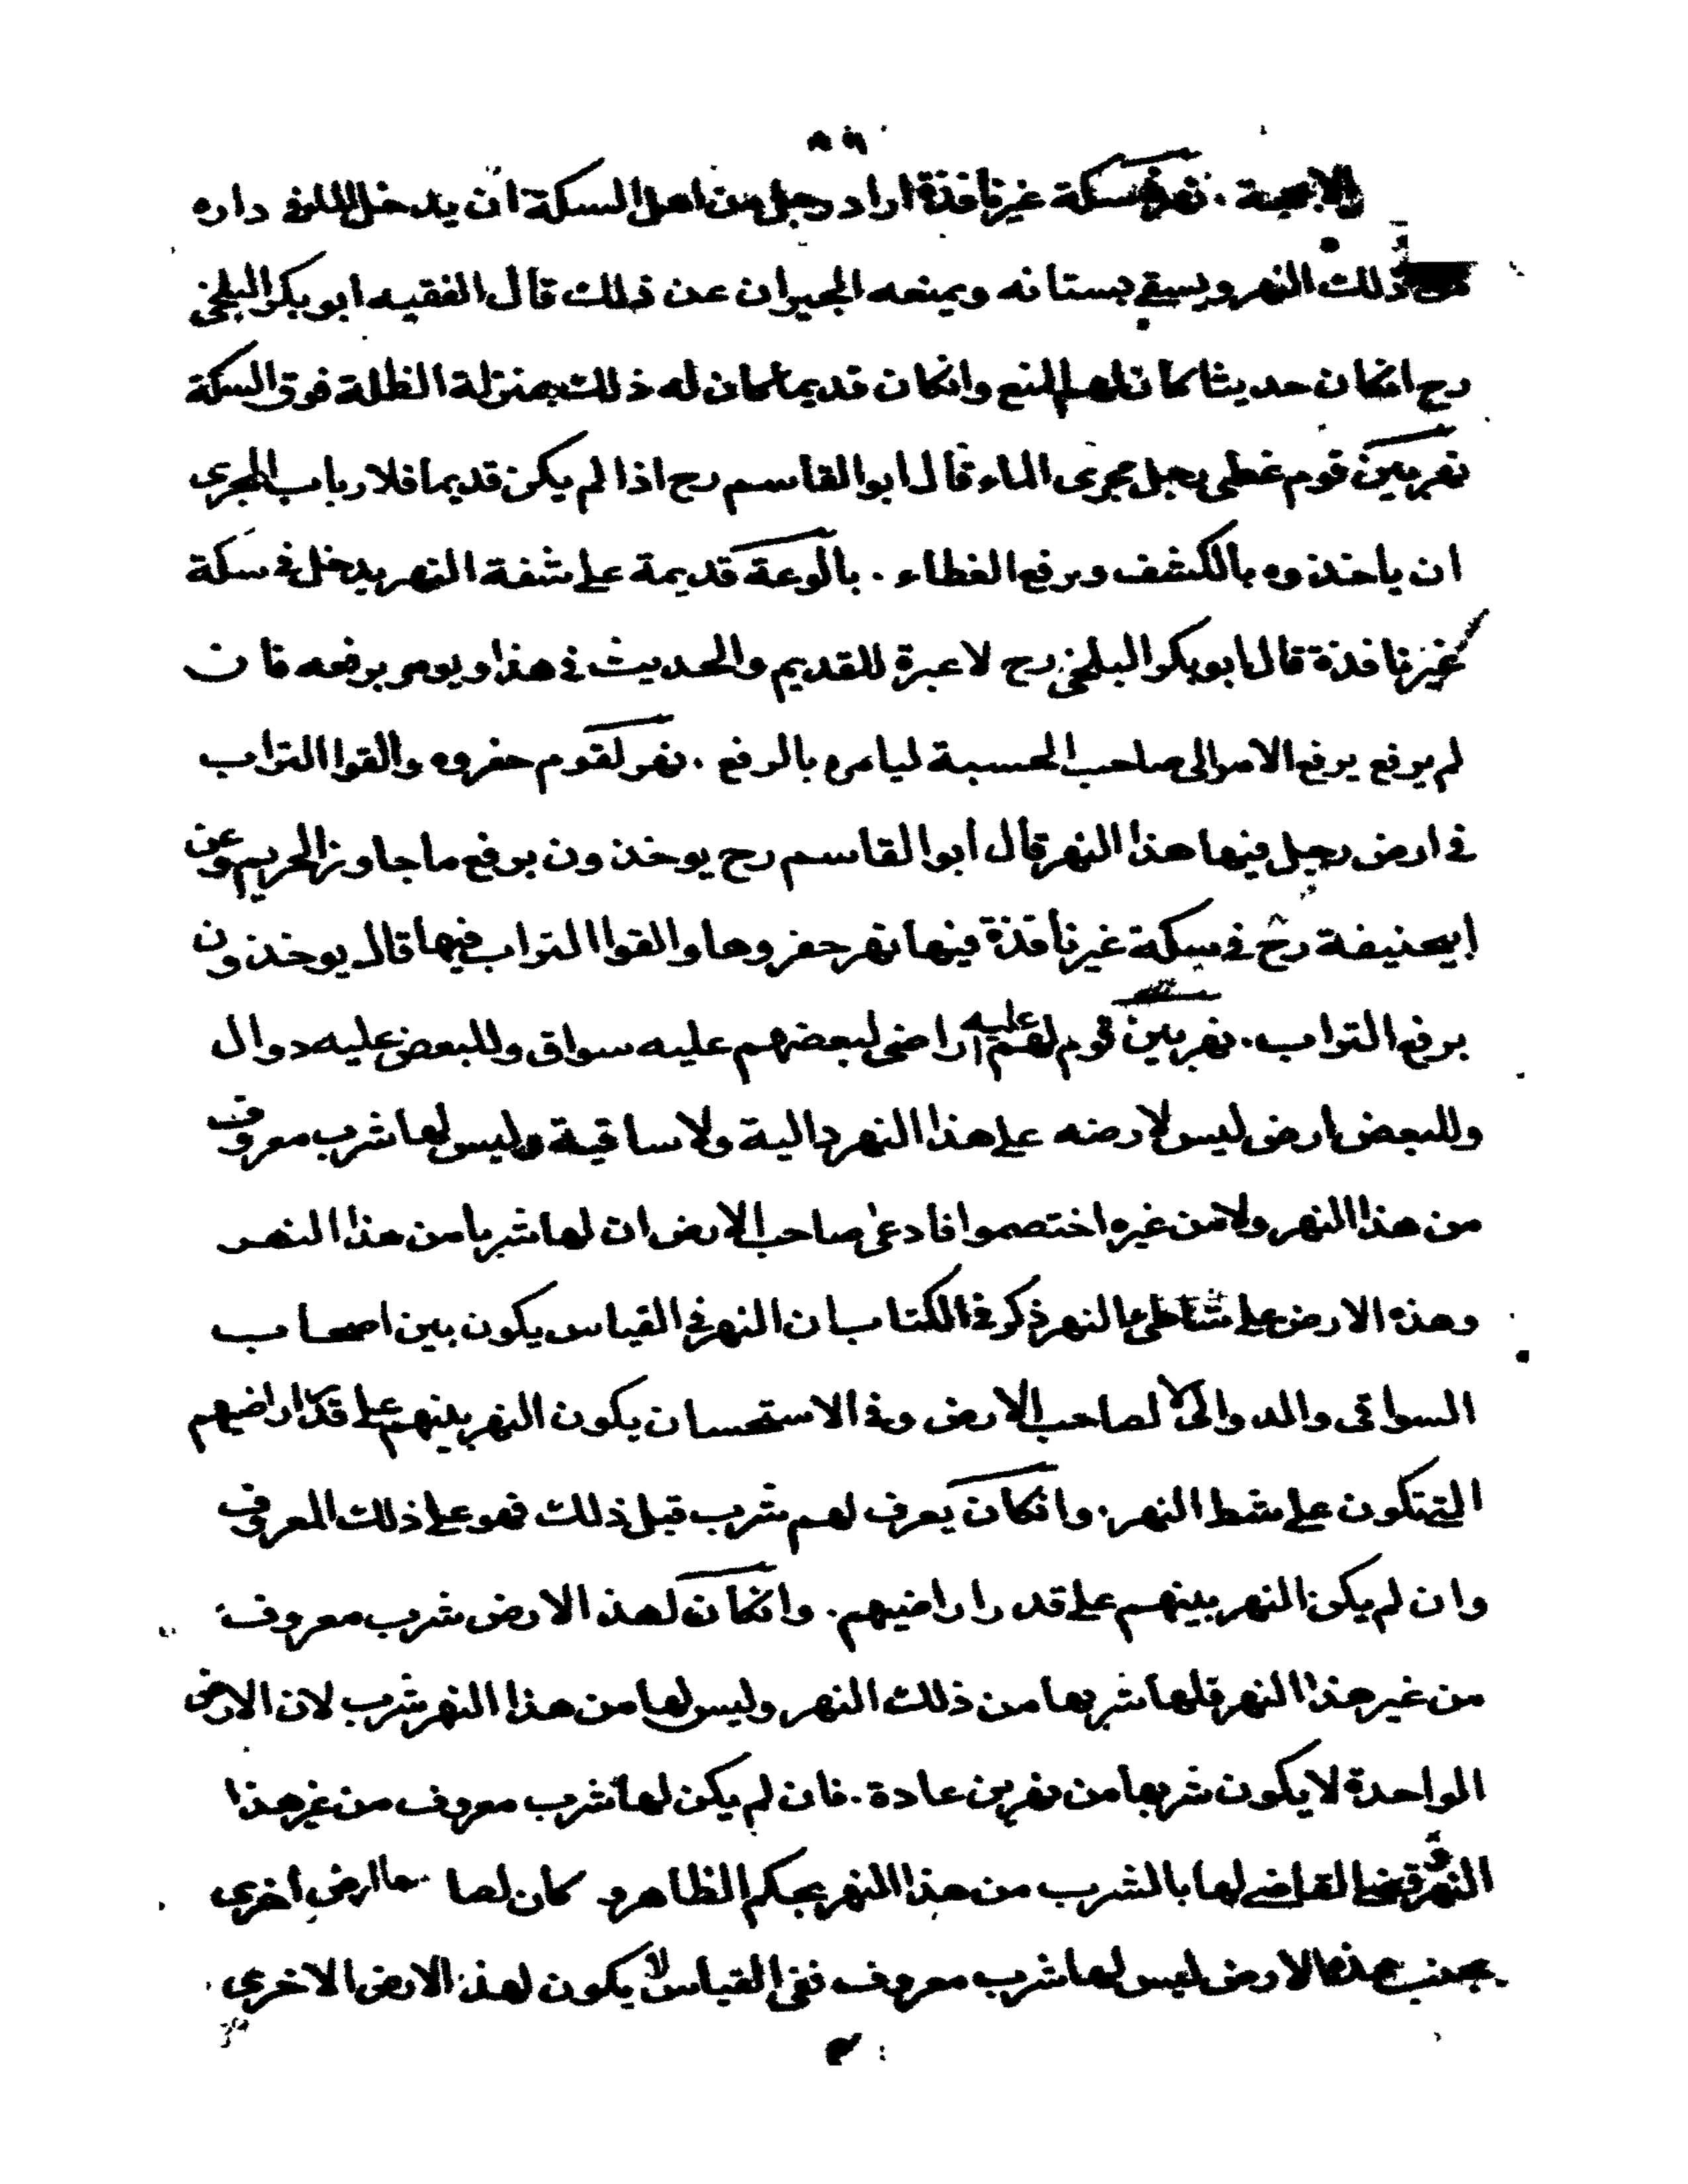 نهر في سكة غير نافذة اراد رجل من اهل السكة ان يدخل الماء في داره
من ذلك النهر ويسقي بستانه ويمنعه الجيران عن ذلك قال الفقيه ابو بكر البلخي
رح انكان حديثا كان لهم المنع وانكان قديما كان له ذلك بمنزلة الظلة فوق السكة
نهر بين قوم غطى رجل مجرى الماء قال ابو القاسم رح اذا لم يكن قديما فلارباب المجرى
ان ياخذوه بالكشف وبرفع الغطاء . بالوعة قديمة على شفة النهر يدخل في سكة
غير نافذة قال ابو بكر البلخي رح لا عبرة للقديم والحديث في هذا ويومر برفعه فان
لم يرفع يرفع الامر الى صاحب الحسبة ليامره بالرفع . نهر لقوم حفروه والقوا التراب
في ارض رجل فيها هذا النهر قال ابو القاسم رح يوخذون برفع ما جاوز الحريم وعن
ابيحنيفة رح في سكة غير نافذة فيها نهر حفروها والقوا التراب فيها قال يوخذون
برفع التراب . نهر بين قوم لهم عليه اراضي لبعضهم عليه سواق وللبعض عليه دوال
وللبعض ارض ليس لارضه على هذا النهر دالية ولا ساقية وليس لها شرب معروف
من هذا النهر ولا من غيره اختصموا فادعى صاحب الارض ان لها شربا من هذا النهر
وهذه الارض على شاطئ النهر ذكر في الكتاب ان النهر في القياس يكون بين اصحاب
السواقى والدوالى لا لصاحب الارض وفي الاستحسان يكون النهر بينهم على قدر اراضيهم
التي تكون على شط النهر . وانكان يعرف لهم شرب قبل ذلك فهو على ذلك المعروف
وان لم يكن النهر بينهم على قدر اراضيهم . وانكان لهذه الارض شرب معروف
من غير هذا النهر فلها شربها من ذلك النهر وليس لها من هذا النهر شرب لان الارض
الواحدة لا يكون شربها من نهرين عادة . فان لم يكن لها شرب معروف من غير هذا
النهر وقضى القاضي لها بالشرب من هذا النهر بحكم الظاهر و كان لصاحبها ارض اخرى
بجنب هذه الارض ليس لها شرب معروف ففي القياس لا يكون لهذه الارض الاخرى